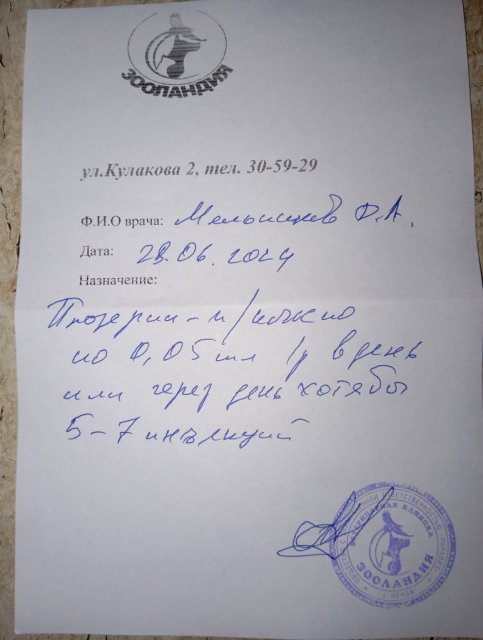 ЗООЛАНДИЯ
ул.Кулакова 2, тел. 30-59-29
Ф.И.О врача: Мельников Ф.А.
Дата: 28.06.2024
Назначение:
Прозерин - п/кожно
по 0,05 мл 1р в день
или через день хотябы
5-7 инъекций
ВЕТЕРИНАРНАЯ КЛИНИКА
ЗООЛАНДИЯ
г. ПЕНЗА